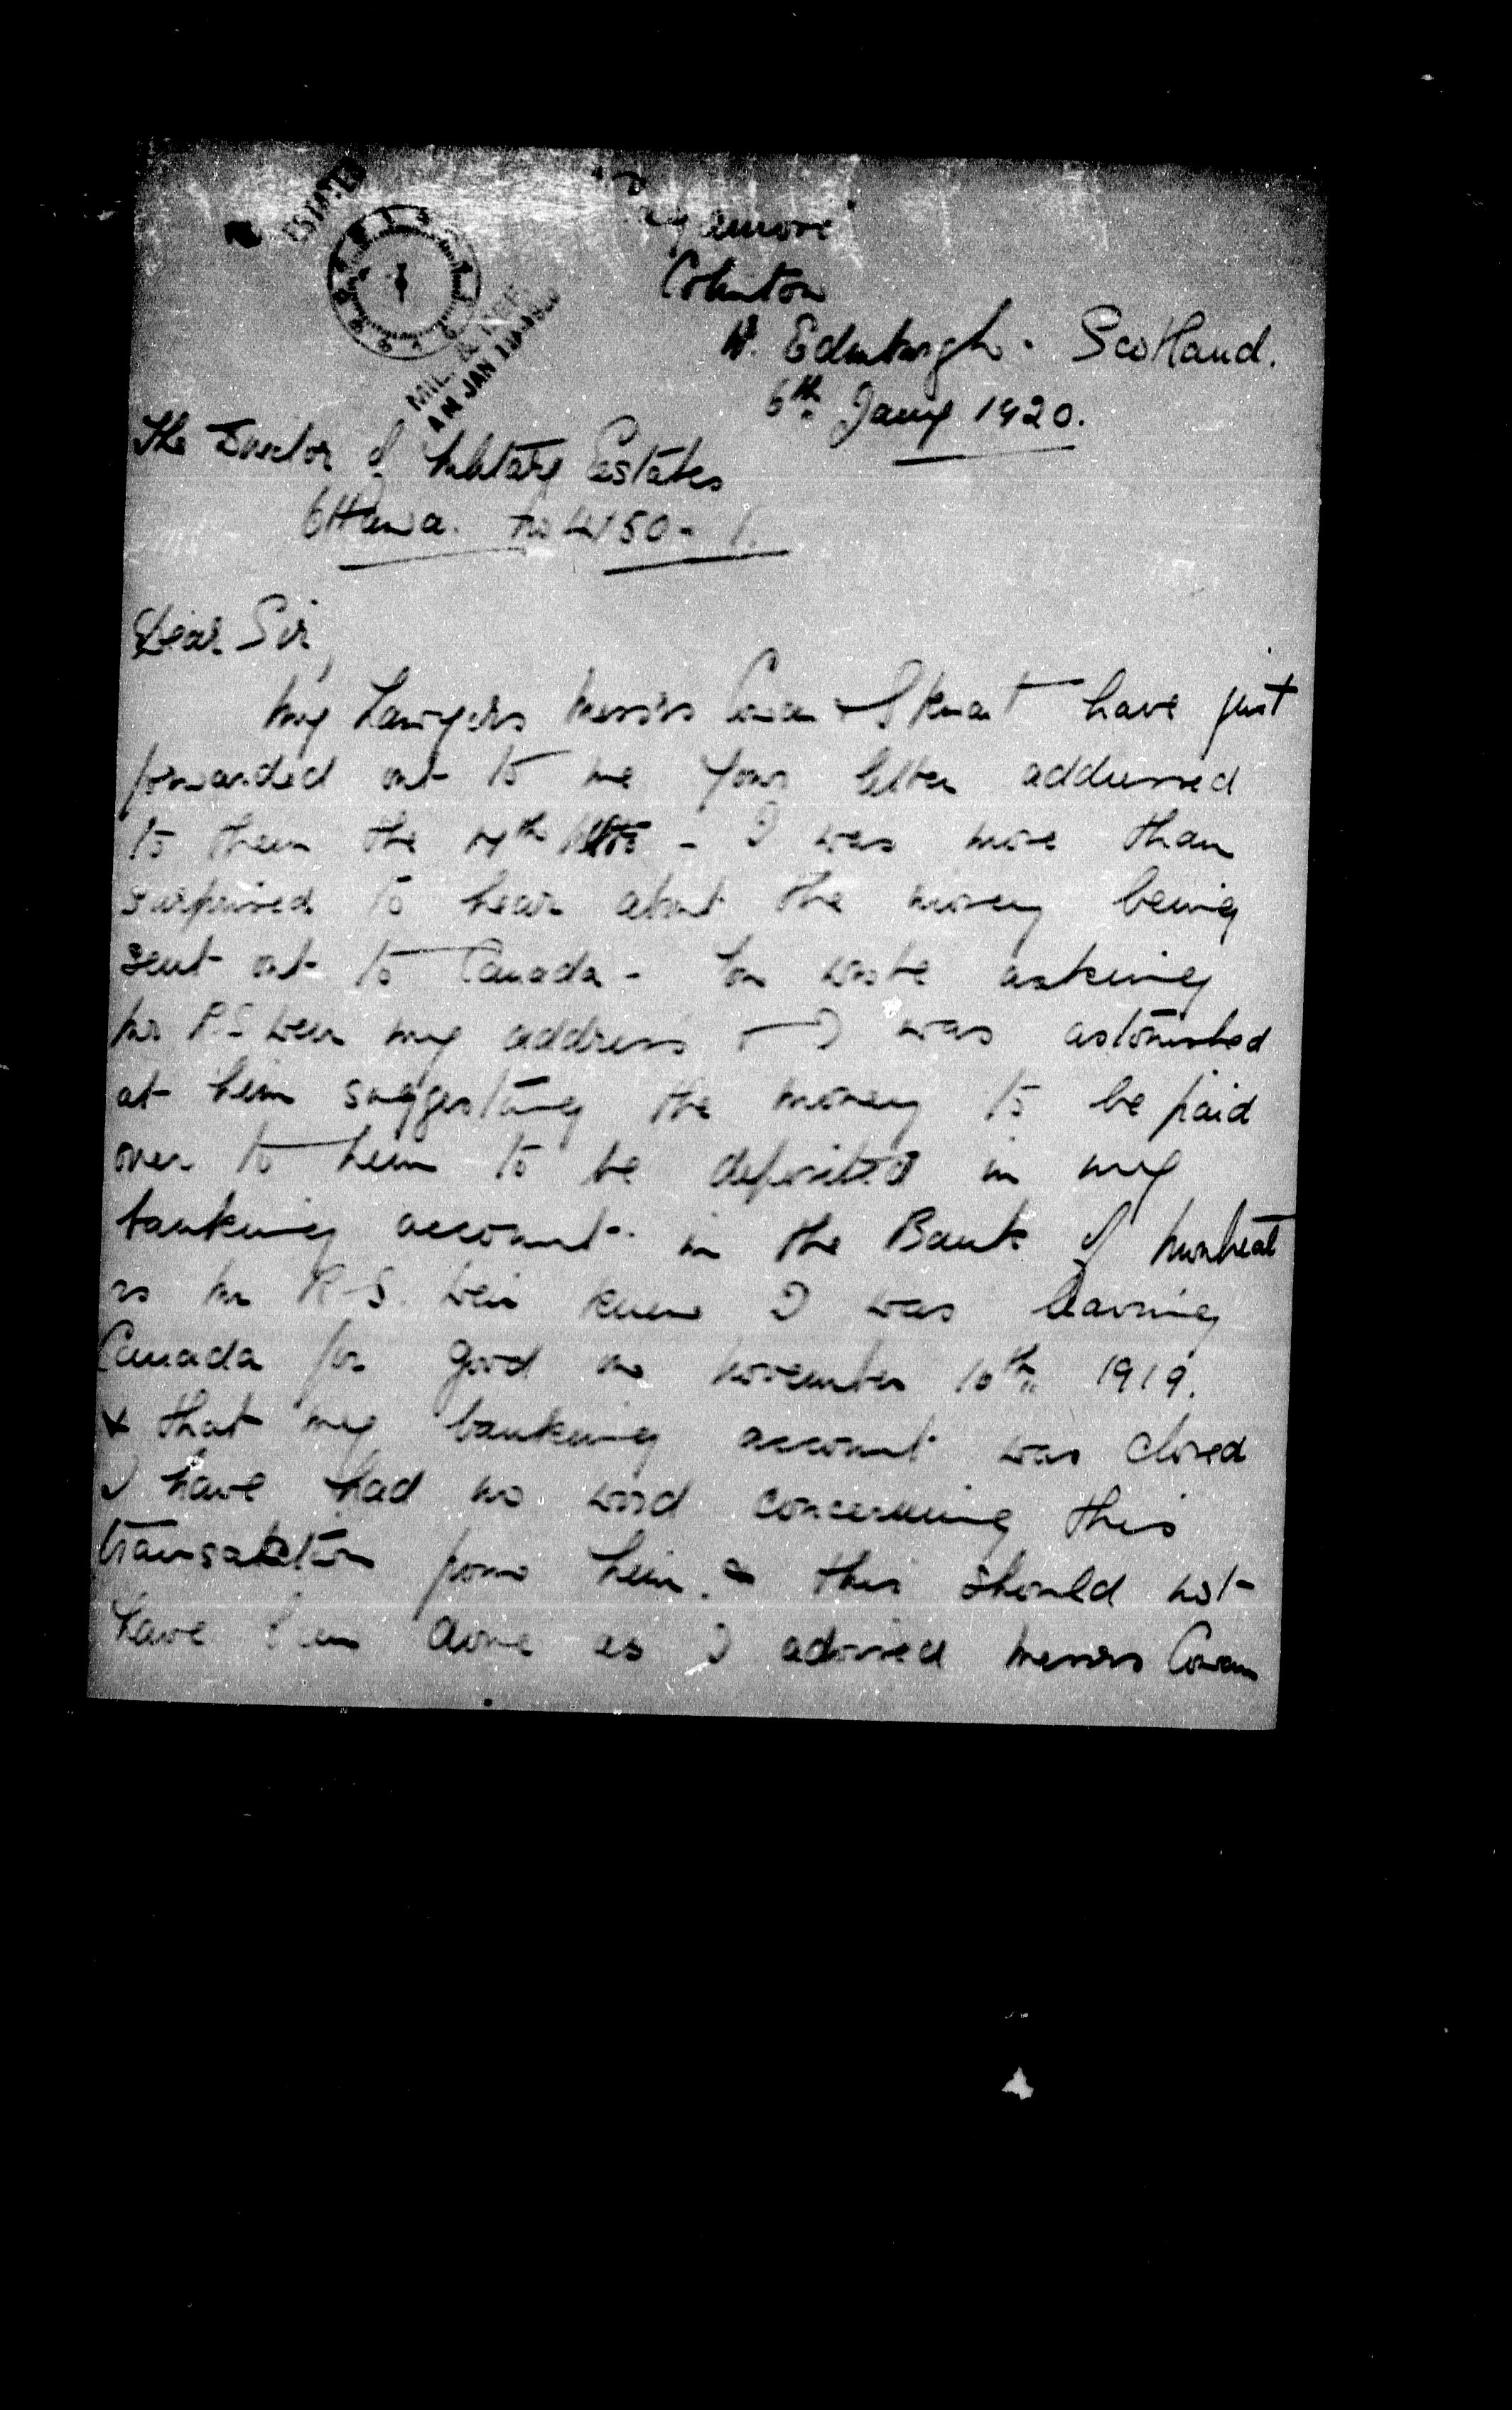 ESTATES
MIL
AM JAN 19 1920
Colinton
Nr. Edinburgh. Scotland.
6th Jany 1920.
The Director of Military Estates
Ottawa. No 4150-
Dear Sir,
My Lawyers Messrs Cowan & Stewart have just
forwarded on to me your letter addressed
to them the 17th Ulto - I was more than
surprised to hear about the money being
sent out to Canada - You wrote asking
Mr R.S. Weir my address & I was astonished
at him suggesting the money to be paid
over to him to be deposited in my
banking account in the Bank of Montreal
as Mr R.S. Weir knew I was leaving
Canada for good on November 10th 1919.
& that my banking account was closed
I have had no word concerning this
transaction from him. this should not
have been done as I advised Messrs Cowan